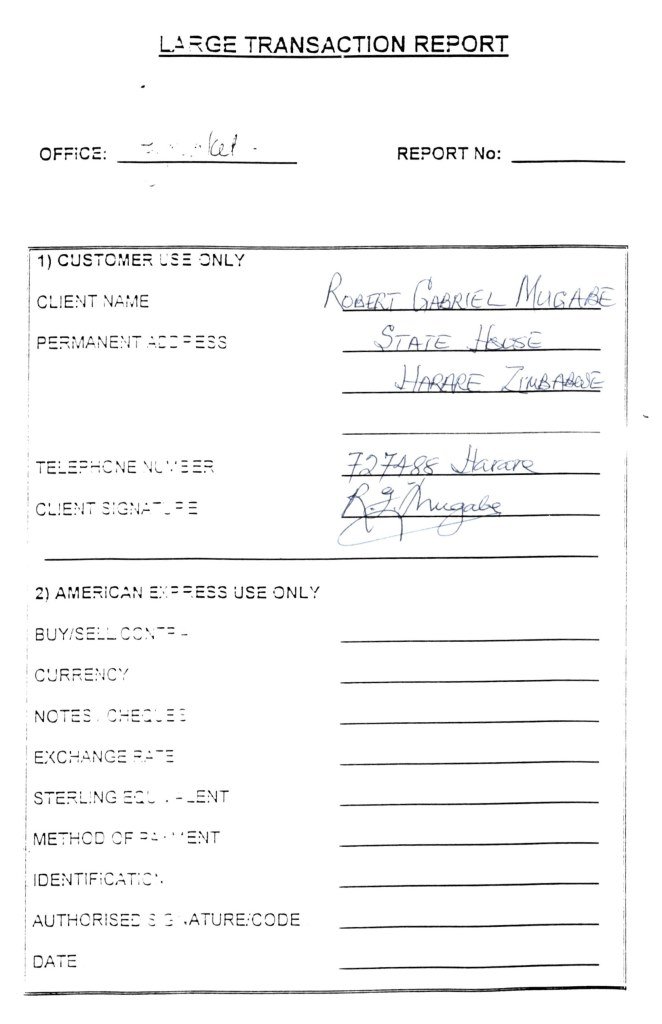 LARGE TRANSACTION REPORT
OFFICE:
REPORT No:
1) CUSTOMER USE ONLY
CLIENT NAME ROBERT GABRIEL MUGABE
PERMANENT ADDRESS STATE HOUSE
HARARE ZIMBABWE
TELEPHONE NUMBER 727488 Harare
CLIENT SIGNATURE R.G. Mugabe
2) AMERICAN EXPRESS USE ONLY
BUY/SELL
CURRENCY
NOTES / CHEQUES
EXCHANGE RATE
STERLING EQUIVALENT
METHOD OF PAYMENT
IDENTIFICATION
AUTHORISED SIGNATURE/CODE
DATE